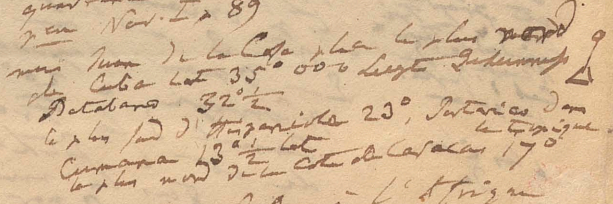 Nov. I p 89
mais Juan de la Cosa place le plus nord
de Cuba lat 35° 000 liegt
Batabano 32° ½
le plus sud d'Hispaniole 23°, Portorico dans
le tropique
Cumana 13° ½ lat
le plus nord de la cote de Caracas 17°
l'Afrique